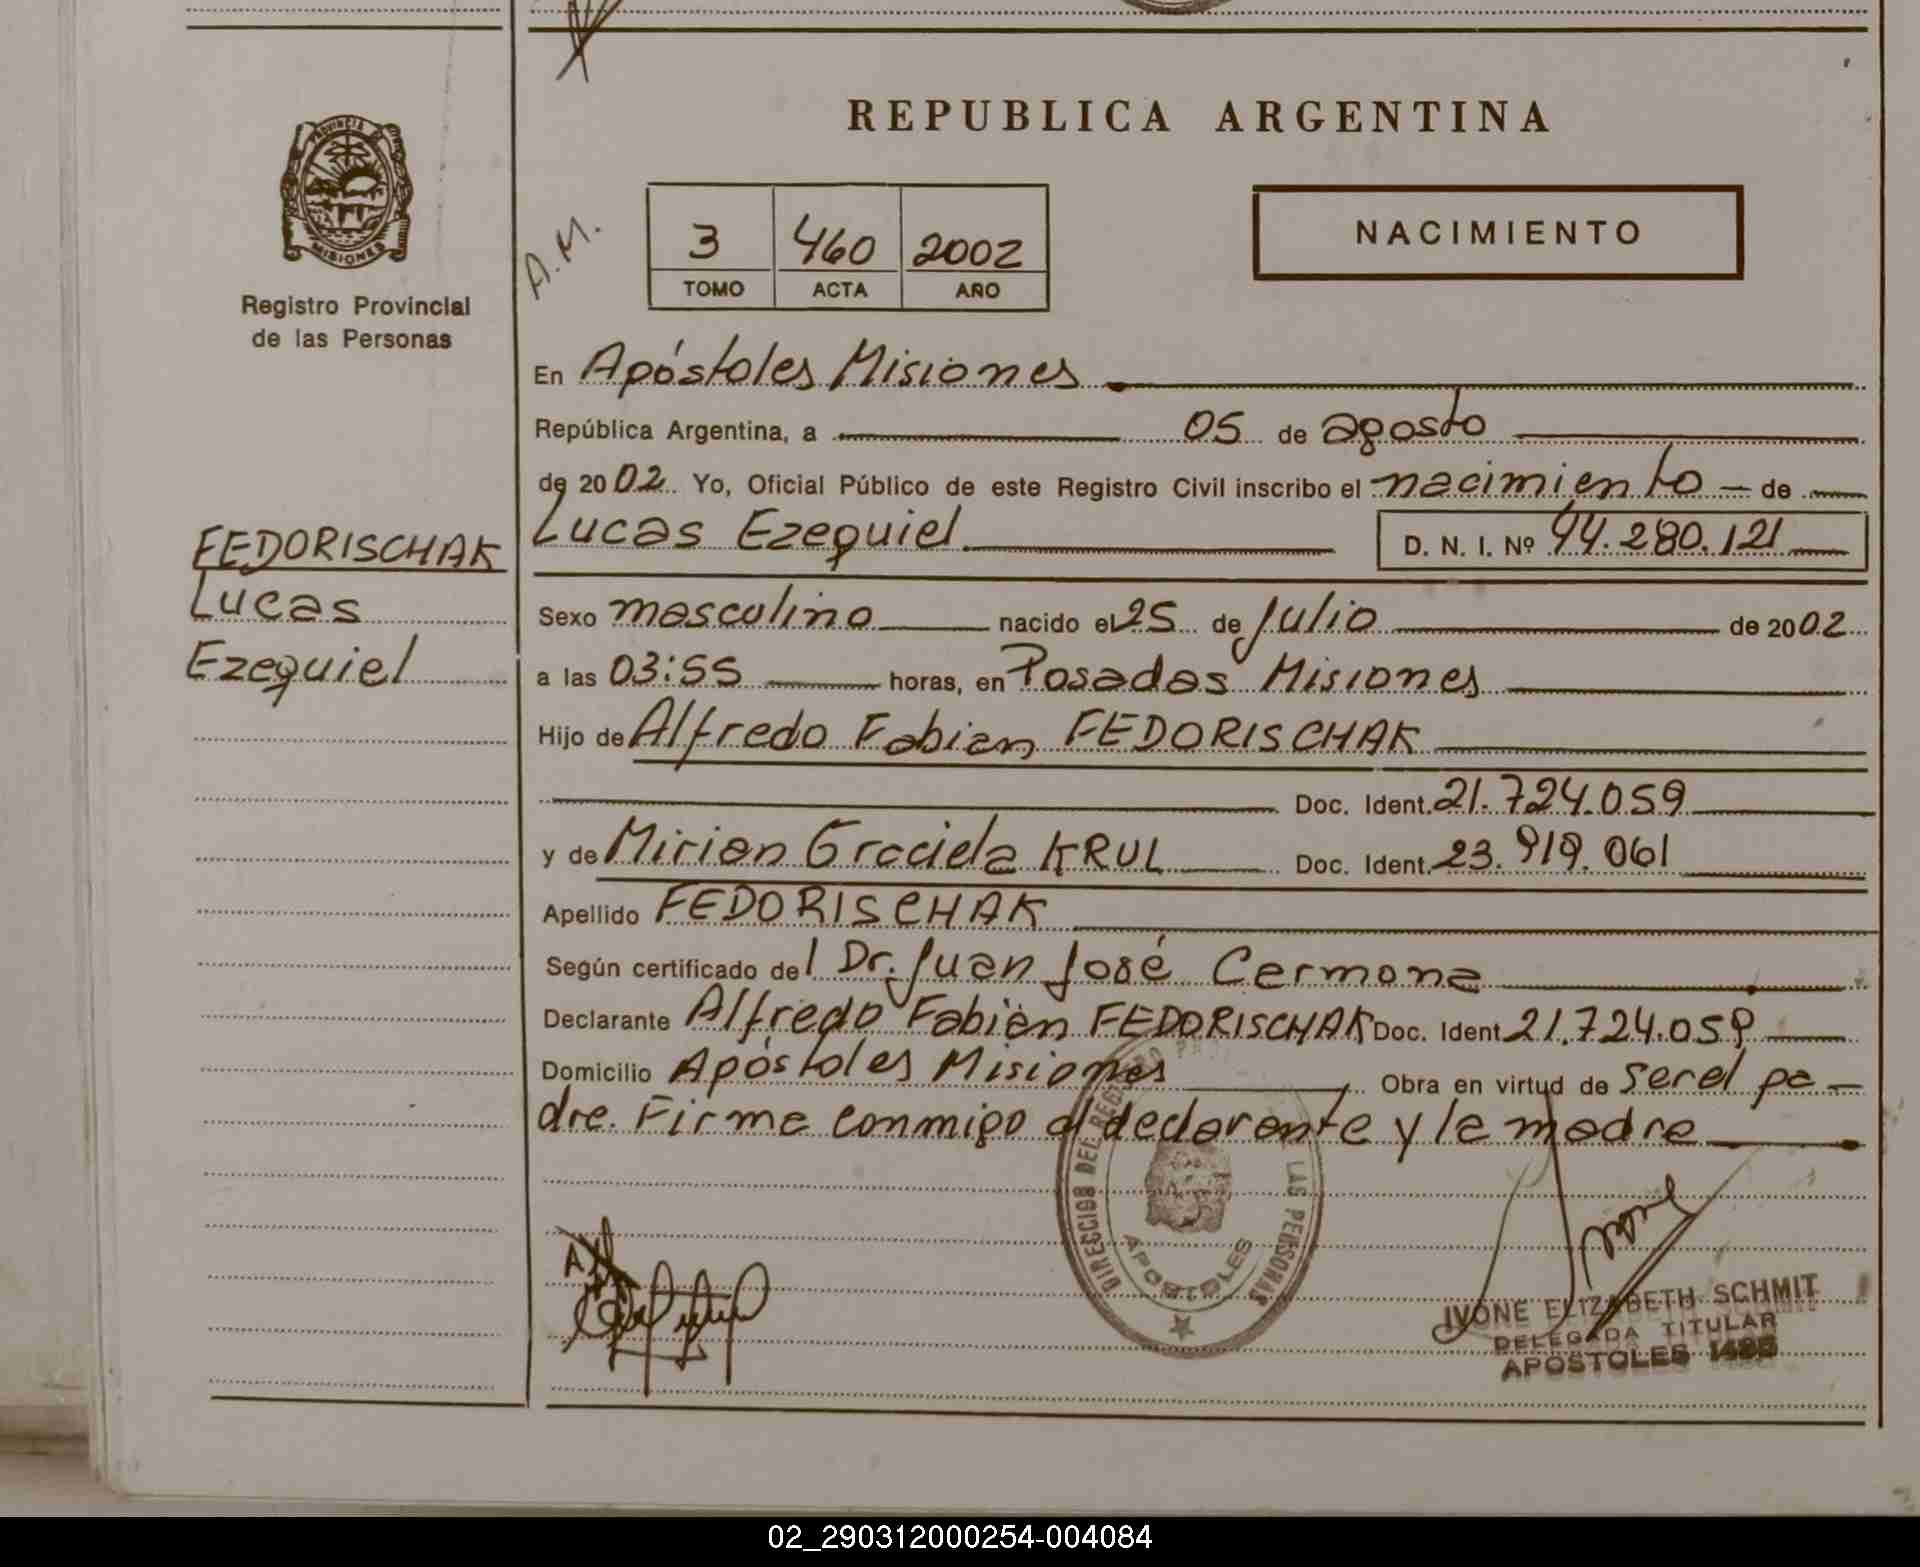 REPUBLICA ARGENTINA
PROVINCIA DE
MISIONES
Registro Provincial
de las Personas
A.M.
3 460 2002
TOMO ACTA AÑO
NACIMIENTO
En Apóstoles Misiones
República Argentina, a 05 de agosto
de 2002. Yo, Oficial Público de este Registro Civil inscribo el nacimiento de
FEDORISCHAK
Lucas
Ezequiel
Lucas Ezequiel D. N. I. Nº 44.280.121
Sexo masculino nacido el 25 de Julio de 2002
a las 03:55 horas, en Posadas Misiones
Hijo de Alfredo Fabian FEDORISCHAK
Doc. Ident. 21.724.059
y de Mirian Graciela KRUL Doc. Ident. 23.919.061
Apellido FEDORISCHAK
Según certificado del Dr. Juan José Cermona
Declarante Alfredo Fabian FEDORISCHAK Doc. Ident. 21.724.059
Domicilio Apóstoles Misiones Obra en virtud de ser el pa-
dre. Firma conmigo el declarante y la madre
DIRECCION DEL REGISTRO LAS PERSONAS
APOSTOLES
IVONE ELIZABETH SCHMIT
DELEGADA TITULAR
APOSTOLES
02_290312000254-004084